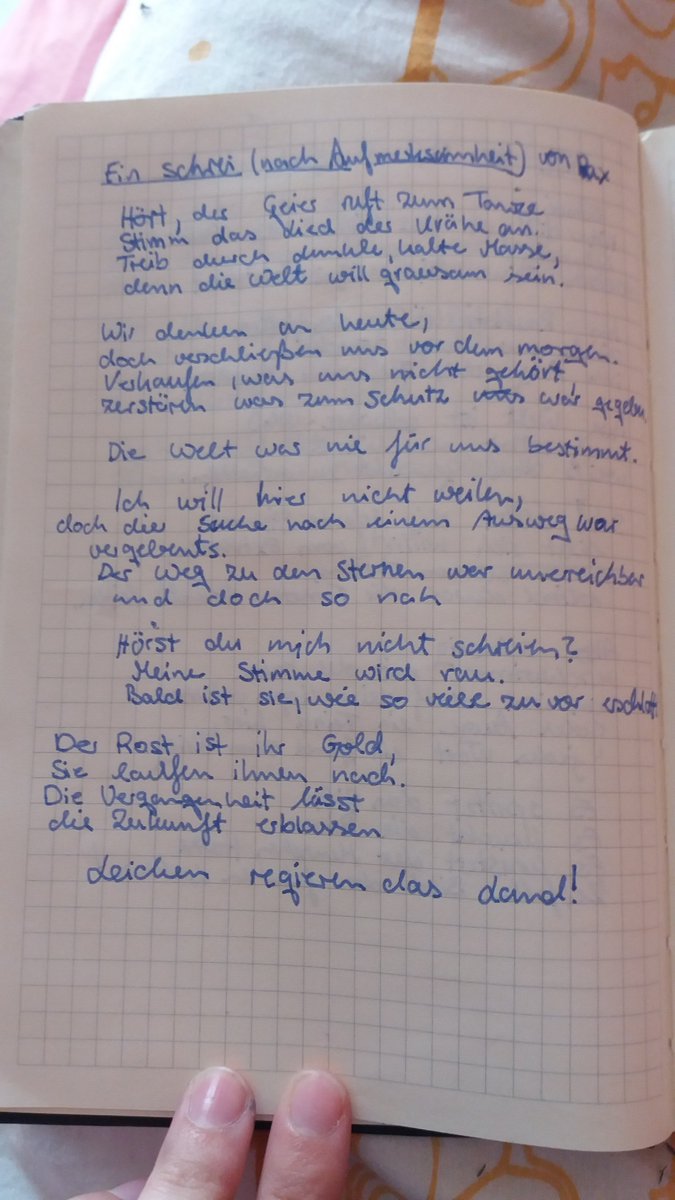 Ein schrei (nach Aufmerksamheit) von Pax
Hört, der Geier ruft zum Tanze
Stimm das Lied der Krähe an.
Treib durch dunkle, kalte Masse,
denn die Welt will grausam sein.
Wir denken an heute,
doch verschließen uns vor dem morgen.
Verkaufen, was uns nicht gehört,
zerstören was zum Schutz war gegeben
Die Welt war nie für uns bestimmt.
Ich will hier nicht weilen,
doch die Suche nach einem Ausweg war
vergebents.
Der Weg zu den Sternen war unerreichbar
und doch so nah
Hörst du mich nicht schreien?
Meine Stimme wird rau.
Bald ist sie, wie so viele zu vor
Der Rost ist ihr Gold,
Sie laufen ihnen nach.
Die Vergangenheit lässt
die Zukunft erblassen
Leichen regieren das Land!